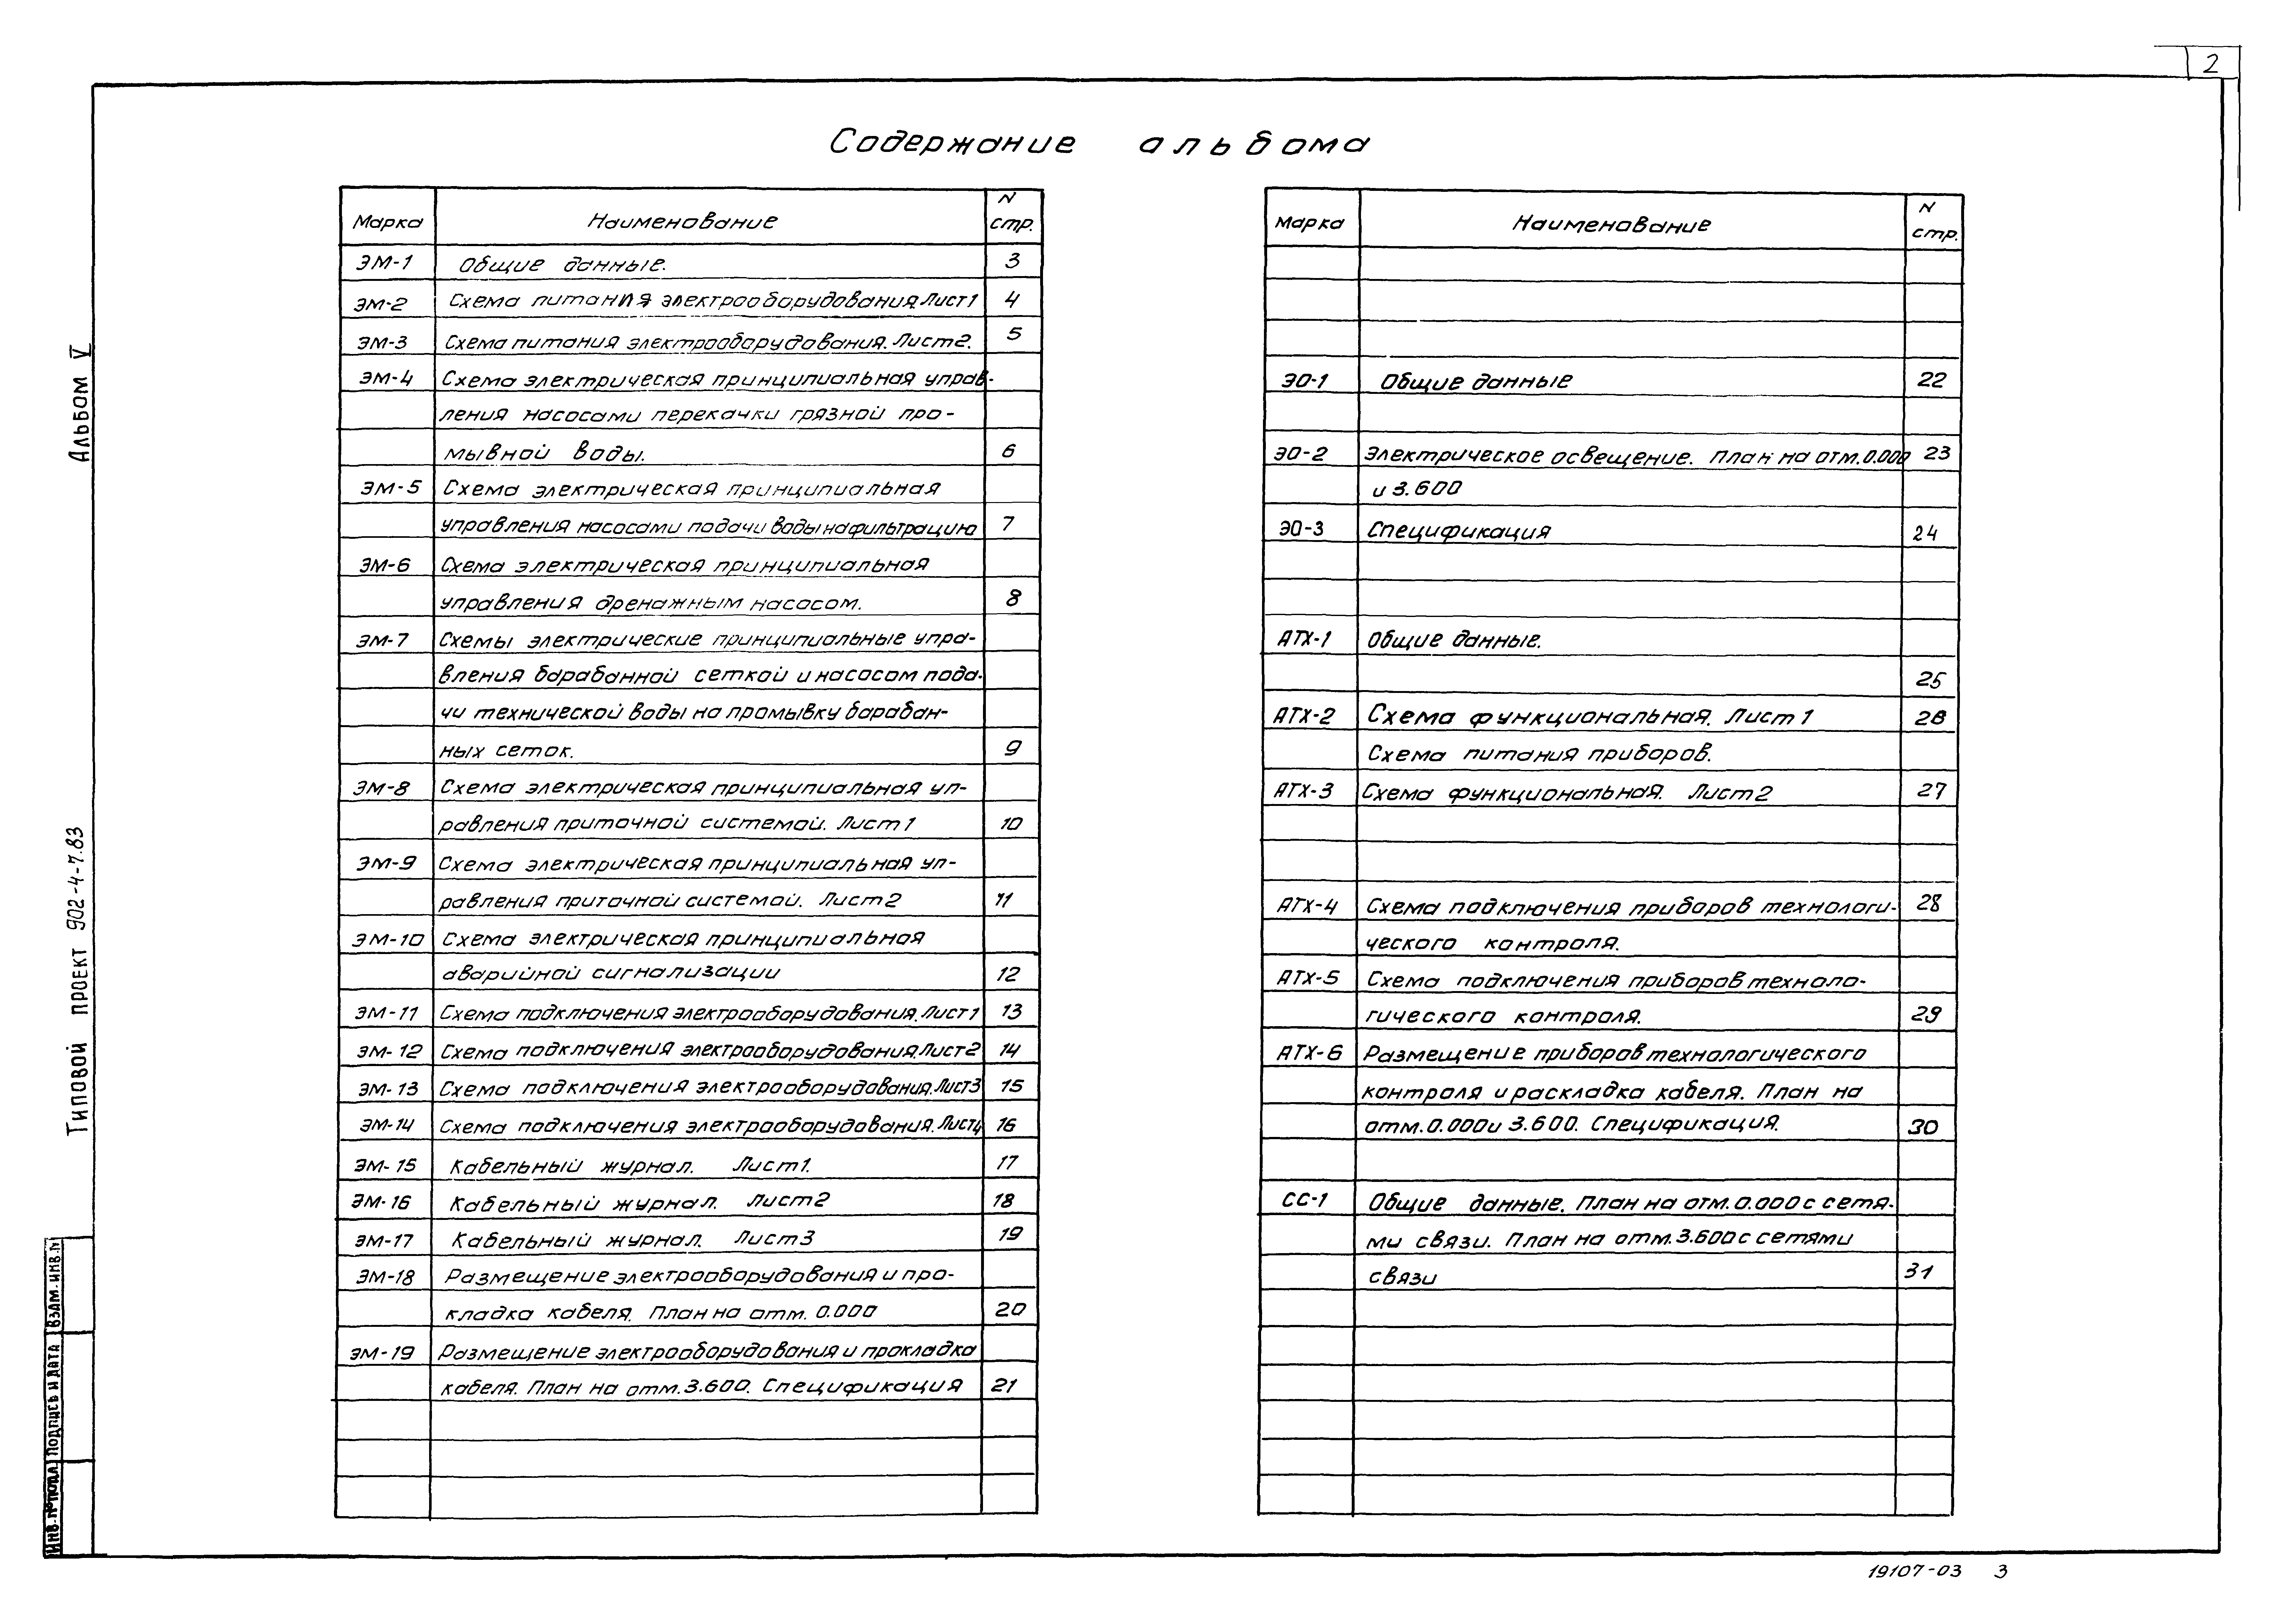 2
Содержание альбома
Марка Наименование N стр.
ЭМ-1 Общие данные. 3
ЭМ-2 Схема питания электрооборудования. Лист 1 4
ЭМ-3 Схема питания электрооборудования. Лист 2. 5
ЭМ-4 Схема электрическая принципиальная управ-
ления насосами перекачки грязной про-
мывной воды. 6
ЭМ-5 Схема электрическая принципиальная
управления насосами подачи воды на фильтрацию 7
ЭМ-6 Схема электрическая принципиальная
управления дренажным насосом. 8
ЭМ-7 Схемы электрические принципиальные упра-
вления барабанной сеткой и насосом пода-
чи технической воды на промывку барабан-
ных сеток. 9
ЭМ-8 Схема электрическая принципиальная уп-
равления приточной системой. Лист 1 10
ЭМ-9 Схема электрическая принципиальная уп-
равления приточной системой. Лист 2 11
ЭМ-10 Схема электрическая принципиальная
аварийной сигнализации 12
ЭМ-11 Схема подключения электрооборудования. Лист 1 13
ЭМ-12 Схема подключения электрооборудования. Лист 2 14
ЭМ-13 Схема подключения электрооборудования. Лист 3 15
ЭМ-14 Схема подключения электрооборудования. Лист 4 16
ЭМ-15 Кабельный журнал. Лист 1. 17
ЭМ-16 Кабельный журнал. Лист 2 18
ЭМ-17 Кабельный журнал. Лист 3 19
ЭМ-18 Размещение электрооборудования и про-
кладка кабеля. План на отм. 0.000 20
ЭМ-19 Размещение электрооборудования и прокладка
кабеля. План на отм. 3.600. Спецификация 21
Марка Наименование N стр.
ЭО-1 Общие данные 22
ЭО-2 Электрическое освещение. План на отм. 0.000 23
и 3.600
ЭО-3 Спецификация 24
АТХ-1 Общие данные.
25
АТХ-2 Схема функциональная. Лист 1 26
Схема питания приборов.
АТХ-3 Схема функциональная. Лист 2 27
АТХ-4 Схема подключения приборов технологи- 28
ческого контроля.
АТХ-5 Схема подключения приборов техноло-
гического контроля. 29
АТХ-6 Размещение приборов технологического
контроля и раскладка кабеля. План на
отм. 0.000 и 3.600. Спецификация. 30
СС-1 Общие данные. План на отм. 0.000 с сетя-
ми связи. План на отм. 3.600 с сетями
связи 31
Альбом V
Типовой проект 902-4-7.83
Взам. инв. №
Подпись и дата
Инв. № подл.
19107-03 3